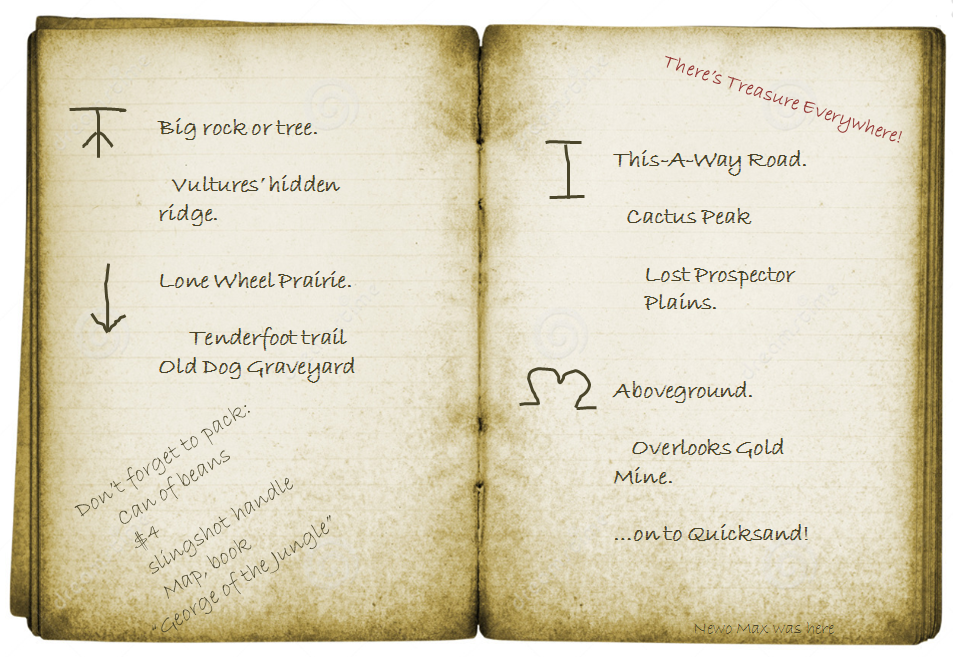 Big rock or tree.
Vultures' hidden
ridge.
Lone Wheel Prairie.
Tenderfoot trail
Old Dog Graveyard
Don't forget to pack:
Can of beans
$4
slingshot handle
Map, book
"George of the Jungle"
There's Treasure Everywhere!
This-A-Way Road.
Cactus Peak
Lost Prospector
Plains.
Aboveground.
Overlooks Gold
Mine.
...on to Quicksand!
Newo Max was here